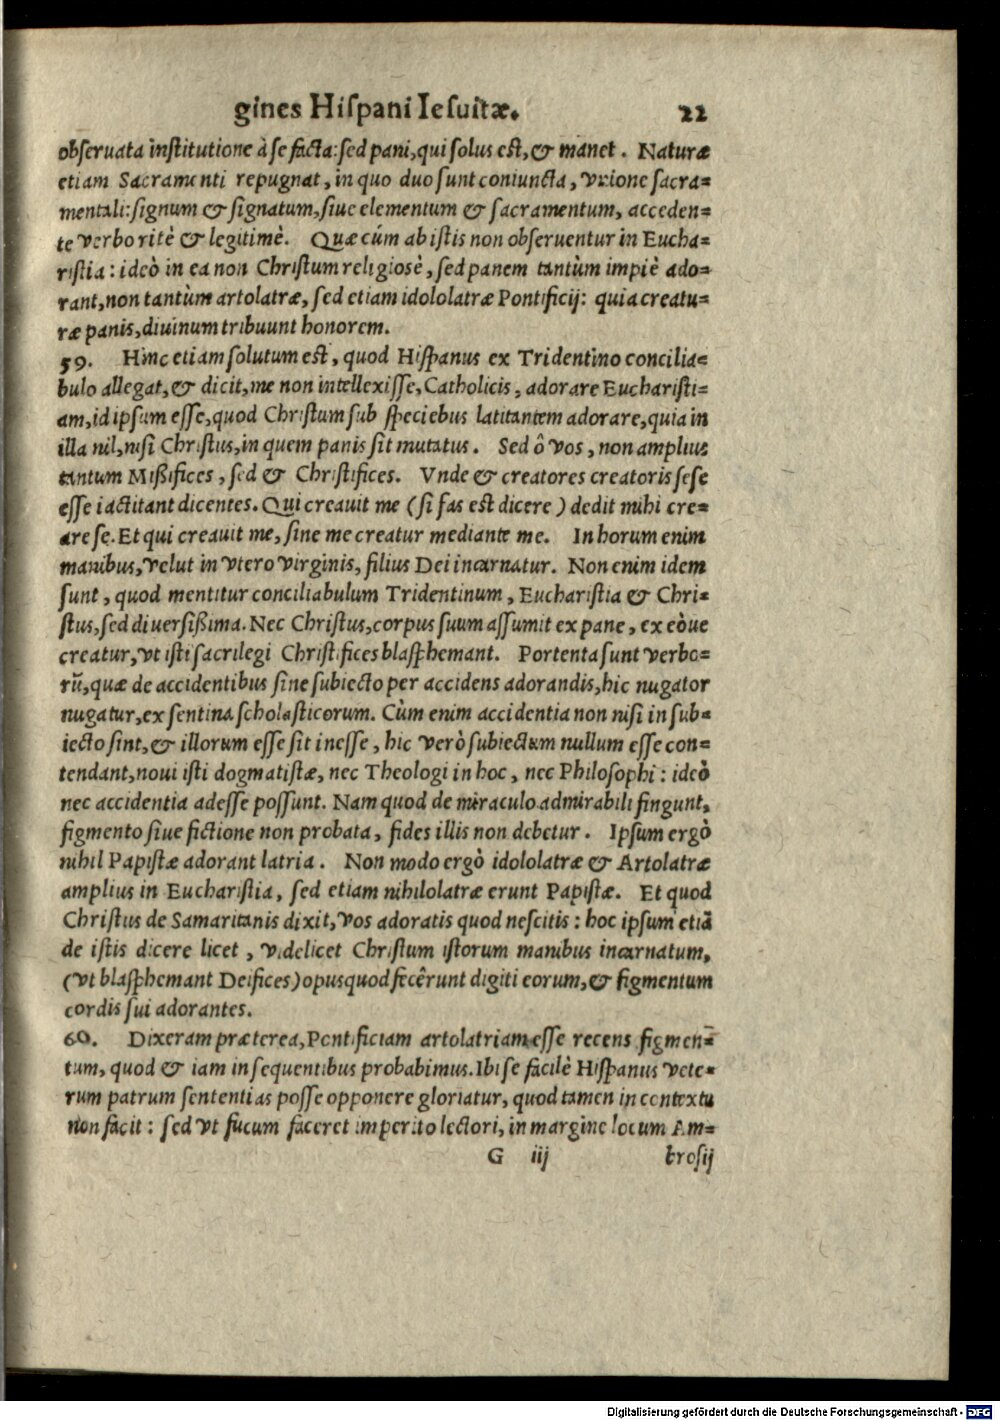 gines Hiſpani Ieſuitæ. 22
obſeruata inſtitutione à ſe facta: ſed pani, qui ſolus eſt, & manet. Naturæ
etiam Sacramenti repugnat, in quo duo ſunt coniuncta, vnione ſacra=
mentali: ſignum & ſignatum, ſiue elementum & ſacramentum, acceden=
te verbo ritè & legitimè. Quæ cúm ab iſtis non obſeruentur in Eucha=
riſtia: ideò in ea non Chriſtum religiosè, ſed panem tantùm impiè ado=
rant, non tantùm artolatræ, ſed etiam idololatræ Pontificij: quia creatu=
ræ panis, diuinum tribuunt honorem.
59. Hinc etiam ſolutum eſt, quod Hiſpanus ex Tridentino concilia=
bulo allegat, & dicit, me non intellexiſſe, Catholicis, adorare Euchariſti=
am, id ipſum eſſe, quod Chriſtum ſub ſpeciebus latitantem adorare, quia in
illa nil, niſi Chriſtus, in quem panis ſit mutatus. Sed ô vos, non amplius
tantum Mißifices, ſed & Chriſtifices. Vnde & creatores creatoris ſeſe
eſſe iactitant dicentes. Qui creauit me (ſi fas eſt dicere) dedit mihi cre=
are ſe. Et qui creauit me, ſine me creatur mediante me. In horum enim
manibus, velut in vtero virginis, filius Dei incarnatur. Non enim idem
ſunt, quod mentitur conciliabulum Tridentinum, Euchariſtia & Chri=
ſtus, ſed diuerſißima. Nec Chriſtus, corpus ſuum aſſumit ex pane, ex eòue
creatur, vt iſti ſacrilegi Chriſtifices blaſphemant. Portenta ſunt verbo=
rũ, quæ de accidentibus ſine ſubiecto per accidens adorandis, hic nugator
nugatur, ex ſentina ſcholaſticorum. Cùm enim accidentia non niſi in ſub=
iecto ſint, & illorum eſſe ſit ineſſe, hic verò ſubiectum nullum eſſe con=
tendant, noui iſti dogmatiſtæ, nec Theologi in hoc, nec Philoſophi: ideò
nec accidentia adeſſe poſſunt. Nam quod de miraculo admirabili fingunt,
figmento ſiue fictione non probata, fides illis non debetur. Ipſum ergò
nihil Papiſtæ adorant latria. Non modo ergò idololatræ & Artolatræ
amplius in Euchariſtia, ſed etiam nihilolatræ erunt Papiſtæ. Et quod
Chriſtus de Samaritanis dixit, vos adoratis quod neſcitis: hoc ipſum etiã
de iſtis dicere licet, videlicet Chriſtum iſtorum manibus incarnatum,
(vt blaſphemant Deifices) opusquod fecêrunt digiti eorum, & figmentum
cordis ſui adorantes.
60. Dixeram præterea, Pontificiam artolatriam eſſe recens figmen=
tum, quod & iam in ſequentibus probabimus. Ibi ſe facilè Hiſpanus vete=
rum patrum ſententias poſſe opponere gloriatur, quod tamen in contextu
non facit: ſed vt fucum faceret imperito lectori, in margine locum Am=
G iij broſij
Digitalisierung gefördert durch die Deutsche Forschungsgemeinschaft - DFG